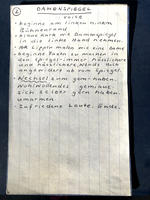 ②
DAMENSPIEGEL
VOICE
• beginne am linken hinten
Bühnenrand
• kleine Karte wie Damenspiegel
in die linke Hand nehmen.
• die Lippen malen wie eine Dame
• beginne Faxen zu machen in
den Spiegel immer hässlichere
und hässlichere, wende dich
angewidert ab vom Spiegel.
• Wechsel zum gern-haben.
Wohlwollendes gemisch
sich selber gern haben
umarmen
• Zufriedene Laute. Ende.